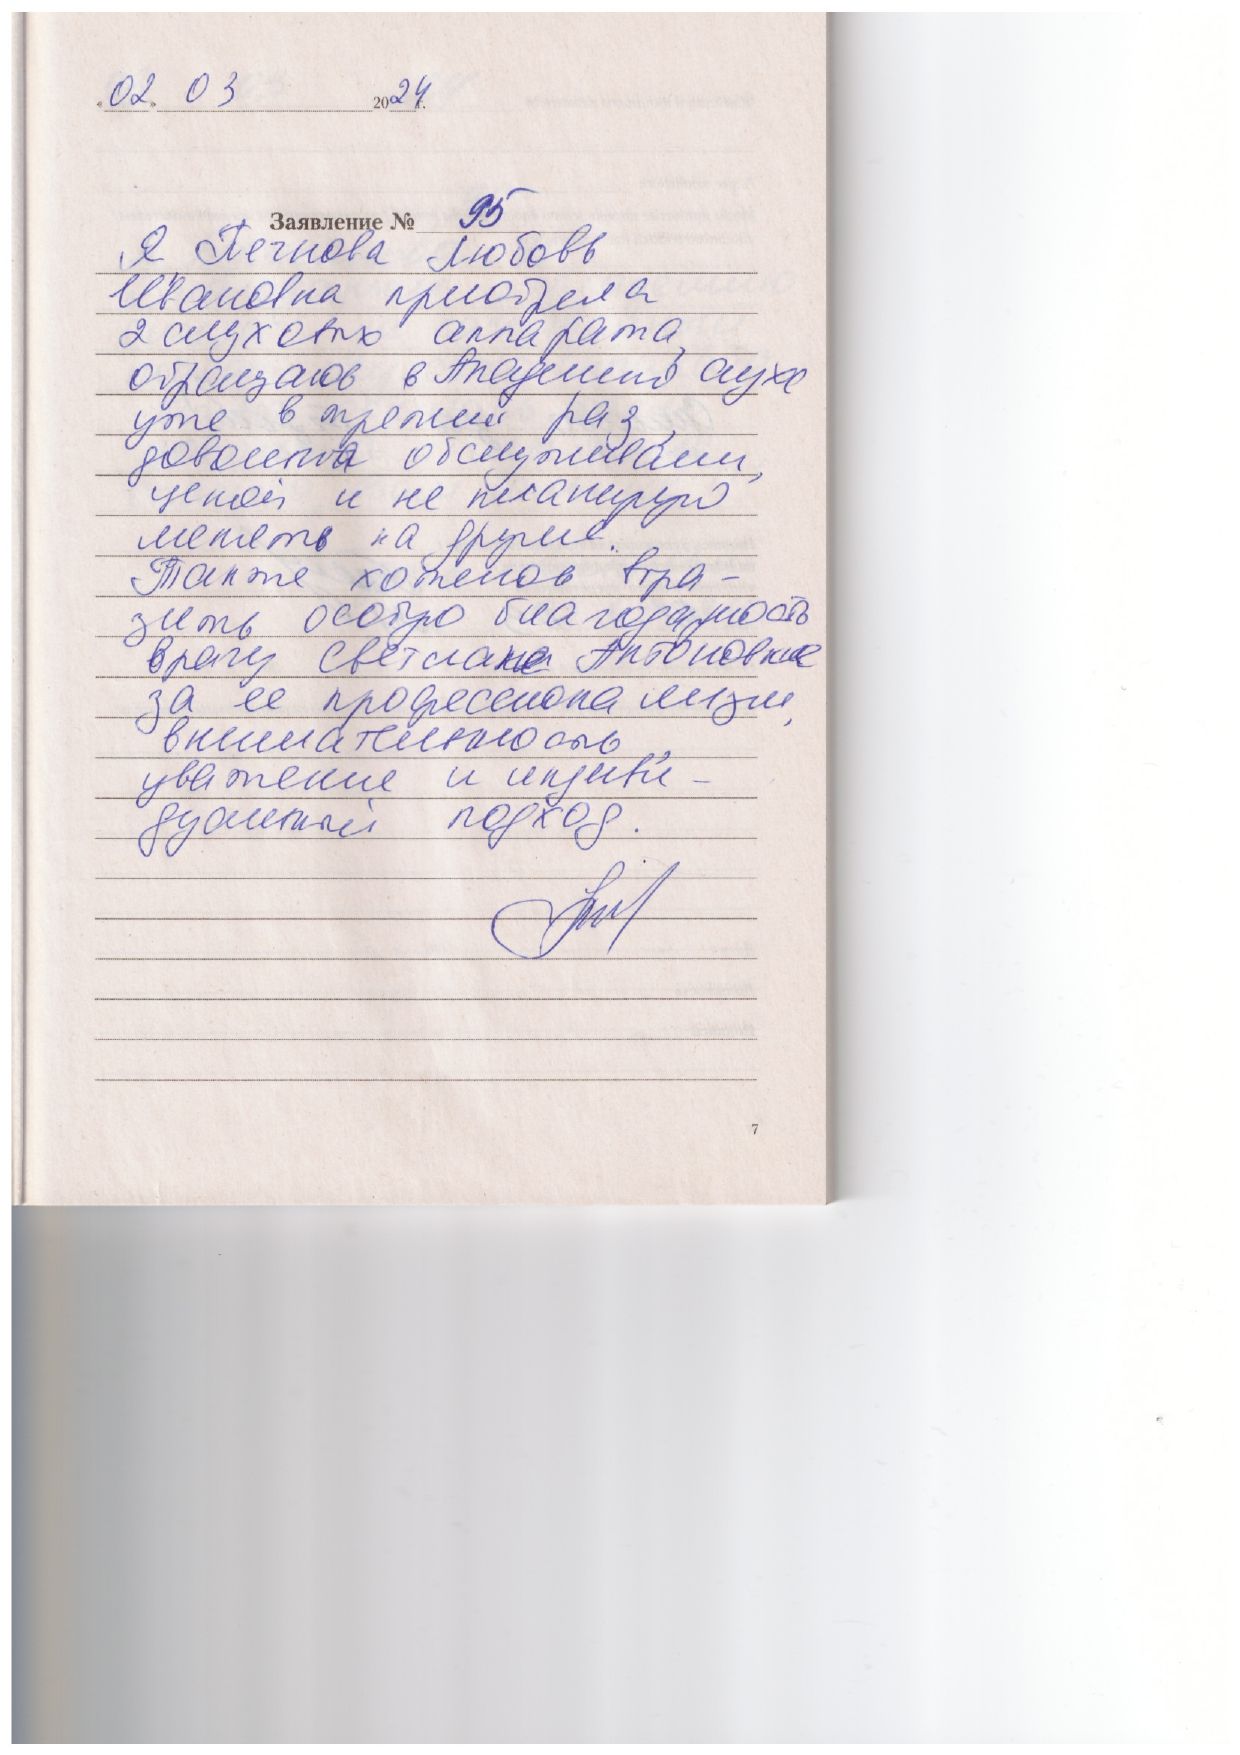 «02» 03 2024г.
Заявление № 95
Я Печнова Любовь
Ивановна приобрела
2 слуховых аппарата,
обращаюсь в Академию слуха
уже в третий раз,
довольна обслуживанием,
ценой и не планирую
менять на другие.
Также хотелось выра-
зить особую благодарность
врачу Светлане Антоновне
за ее профессионализм,
внимательность,
уважение и индиви-
дуальный подход.
7